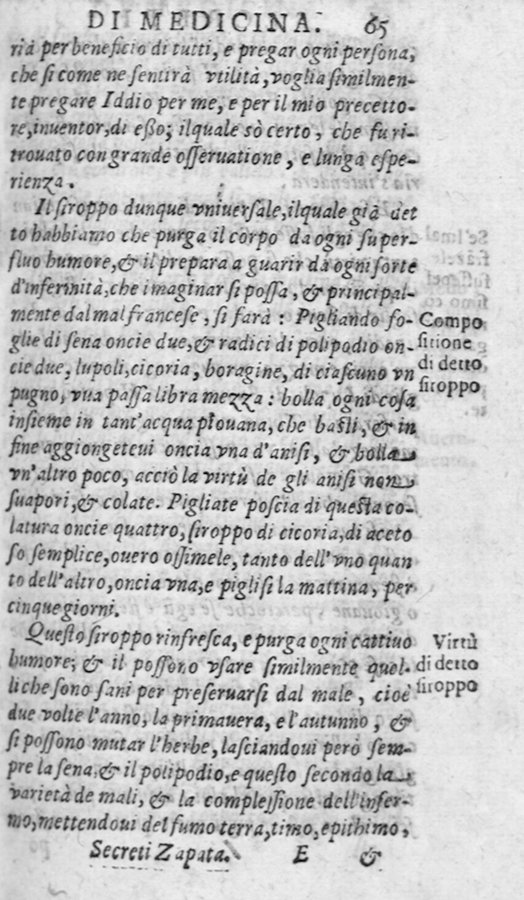 DI MEDICINA. 65
rià per beneficio di tutti, e pregar ogni persona,
che si come ne sentirà vtilità, voglia similmen-
te pregare Iddio per me, e per il mio precetto-
re, inuentor, di eßo; ilquale sò certo, che fu ri-
trouato con grande osseruatione, e lunga espe-
rienza.
Il siroppo dunque vniuersale, ilquale già det
to habbiamo che purga il corpo da ogni super-
fluo humore, & il prepara a guarir da ogni sorte
d'infermità, che imaginar si possa, & principal-
mente dal mal francese, si farà: Pigliando fo-
glie di sena oncie due, & radici di polipodio on-
cie due, lupoli, cicoria, boragine, di ciascuno vn
pugno, vua passa libra mezza: bolla ogni cosa
insieme in tant'acqua piouana, che basti, & in
fine aggiongeteui oncia vna d'anisi, & bolla
vn'altro poco, acciò la virtù de gli anisi non
suapori, & colate. Pigliate poscia di questa co-
latura oncie quattro, siroppo di cicoria, di aceto
so semplice, ouero ossimele, tanto dell'vno quan
to dell'altro, oncia vna, e piglisi la mattina, per
cinque giorni.
Questo siroppo rinfresca, e purga ogni cattiuo
humore; & il possono vsare similmente quel-
li che sono sani per preseruarsi dal male, cioè
due volte l'anno, la primauera, e l'autunno, &
si possono mutar l'herbe, lasciandoui però sem-
pre la sena, & il polipodio, e questo secondo la
varietà de mali, & la complessione dell'infer-
mo, mettendoui del fumo terra, timo, epithimo,
Secreti Zapata. E &
Compo
sitione
di detto
siroppo
Virtù
di detto
siroppo